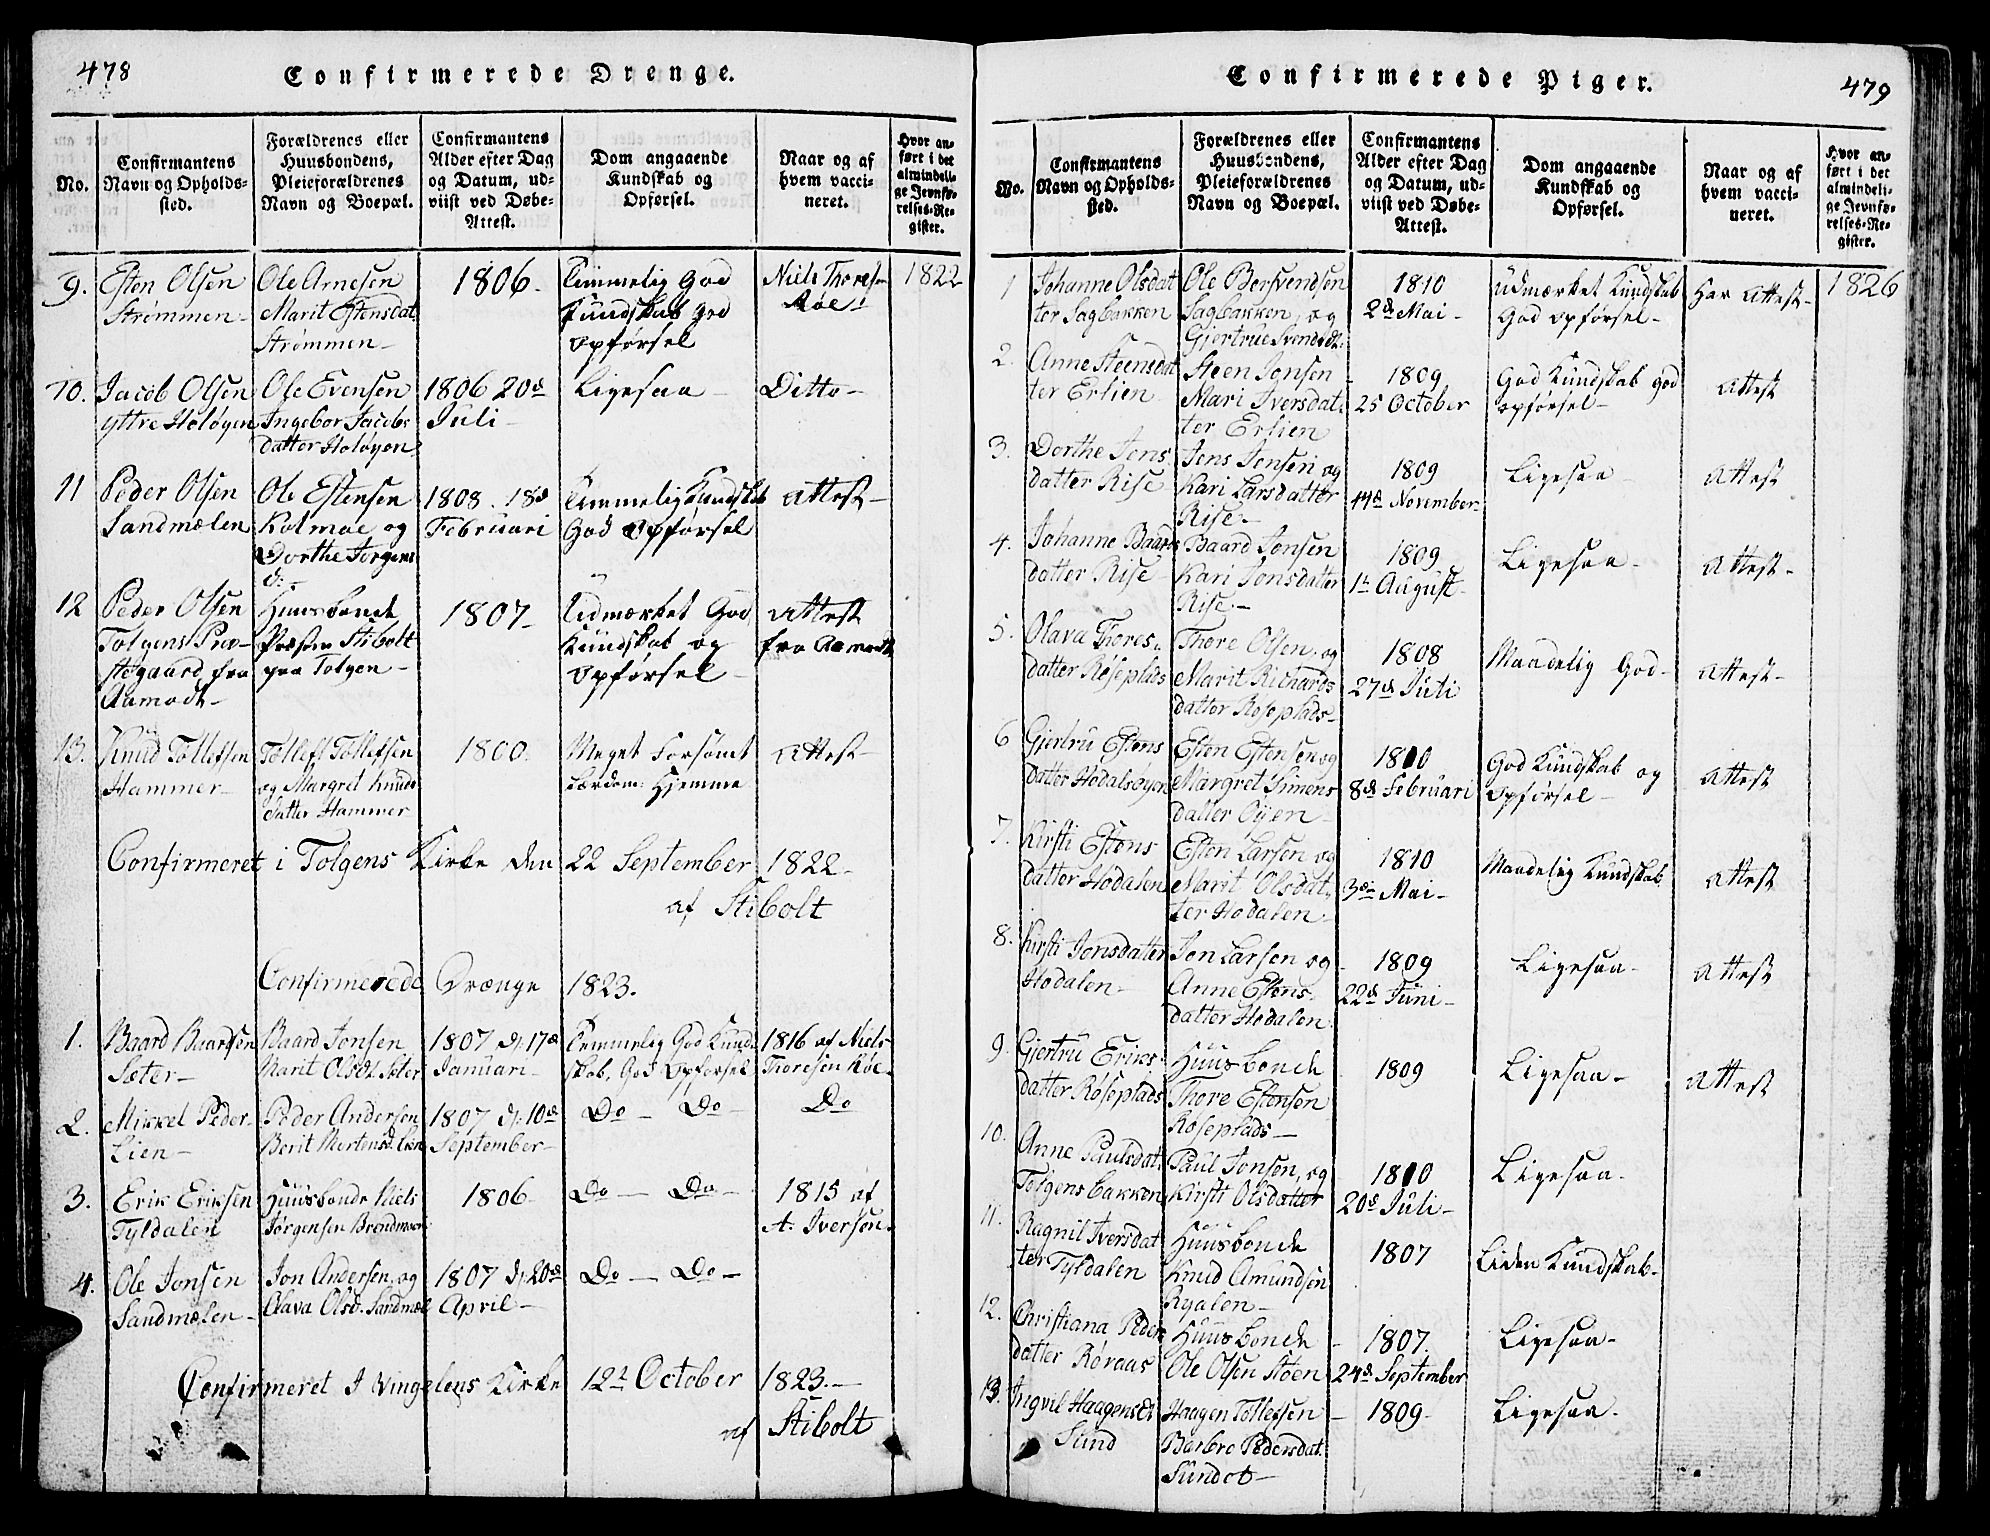 478
Confirmerede Drenge.
No.
Confirmantens
Navn og Opholds-
sted.
Forældrenes eller
Huusbondens,
Pleieforældrenes
Navn og Boepæl.
Confirmantens
Alder efter Dag
og Datum, ud-
viist ved Døbe-
Attest.
Dom angaaende
Kundskab og
Opførsel.
Naar og af
hvem vacci-
neret.
Hvor an-
ført i det
almindeli-
ge Jevnfø-
relses-Re-
gister.
9. Esten Olsen
Strømmen-
Ole Arnesen
Marit Estensdat.
Strømmen-
1806-
Temmelig God
Kundskab God
Opførsel
Niels Thoresen
Røe
1822
10. Jacob Olsen
yttre Holøyen
Ole Evensen
Ingebor Jacobs
datter Holøyen
1806 20de
Juli-
Ligesaa
Ditto-
11 Peder Olsen
Sandmælen
Ole Estensen
Kolmoe og
Dorthe Jørgens
d:-
1808. 18d
Februari
Temmelig Kundskab
God Opførsel
Attest-
12 Peder Olsen
Tolgens Præ-
stegaard, fra
Aamodt-
Huusbonde
Præsten Stibolt
paa Tolgen-
1807-
Udmærket God
Kundskab og
Opførsel-
Attest
fra Aamodt
13. Knud Tollefsen
Hammer-
Tollef Tollefsen
og Margret Knuds
datter Hammer
1800.
Meget Forsømt
Lærdom: Hjemme
Attest-
Confirmeret i Tolgens Kirke den 22 September 1822-
af Stibolt
Confirmerede Drænge 1823.
1. Baard Baardsen
Sæter-
Baard Jonsen
Marit Olsdt. Sæter
1807 d: 17de
Januari-
Temmelig God Kund-
skab, God Opførsel
1816 af Niels
Thoresen Røe-
2. Mikkel Peder-
Lien-
Peder Andersen
Berit Mortensd. Lien
1807 d: 10de
September-
Do - Do-
Do
3. Erik Eriksen
Tyldalen
Huusbonde Niels
Jørgensen Brendmoen
1806-
Do - Do-
1815 af
A. Iversøn.
4. Ole Jonsen
Sandmælen-
Jon Andersen, og
Olava Olsd. Sandmæl
1807 d: 20de
April-
Do - Do-
Confirmeret I Vingelens Kirke 12te October 1823.-
af Stibolt
Confirmerede Piger.
479
No.
Confirmantens
Navn og Opholds-
sted.
Forældrenes eller
Huusbondens,
Pleieforældrenes
Navn og Boepæl.
Confirmantens
Alder efter Dag
og Datum, ud-
viist ved Døbe-
Attest.
Dom angaaende
Kundskab og
Opførsel.
Naar og af
hvem vacci-
neret.
Hvor an-
ført i det
almindeli-
ge Jevnfø-
relses-Re-
gister.
1 Johanne Olsdat
ter Sagbakken
Ole Bersvendsen
Sagbakken, og
Gjertrue Svendsdt:
1810
2de Mai-
Udmærket Kundskab
God Opførsel-
Har Attest-
1826
2. Anne Steensdat
ter Erlien
Steen Jonsen
Mari Iversdat.
ter Erlien
1809
25 October
God Kundskab god
opførsel-
Attest
3. Dorthe Jons
datter Rise
Jens Jonsen og
Kari Larsdatter
Rise-
1809
14de November-
Ligesaa
Attest
4. Johanne Baards
datter Rise
Baard Jonsen
Kari Jonsdatter
Rise-
1809
1te August-
Ligesaa-
Attest-
5. Olava Thores-
datter Røseplads
Thore Olsen, og
Marit Richards
datter Roseplads-
1808
27de Juli
Maadelig God-
Attest-
6 Gjertru Estens
datter Hodalsøyen
Esten Estensen og
Margret Simens
datter Øyen-
1810
8de Februari
God Kundskab og
Opførsel-
Attest
7. Kirsti Estens
datter Hodalen
Esten Larsen og
Marit Olsdat.
ter Hodalen-
1810
3die Mai-
Maadelig Kundskab
Attest
8. Kirsti Jonsdatter
Hodalen-
Jon Larsen og
Anne Estens-
datter Hodalen
1809
22de Juni-
Ligesaa-
Attest
9. Gjertru Eriks-
datter Røseplads
Huusbonde
Thore Estensen
Roseplads-
1809
Ligesaa-
Attest
10. Anne Paulsdat.
Tolgensbakken
Paul Jonsen, og
Kirsti Olsdatter
1810
20de Juli-
Ligesaa-
11. Ragnil Iversdat
ter Tyldalen
Huusbonde
Knud Amundsen
Ryalen-
1807
Liden Kundskab-
12. Christiana Peder
datter Røraas
Huusbonde
Ole Olsen Støen
1807.
24de September
Ligesaa-
13. Ingvil Haagensdt
Sund
Haagen Tollefsen
Barbro Pedersdat.
Sundet-
1809-
Ligesaa-